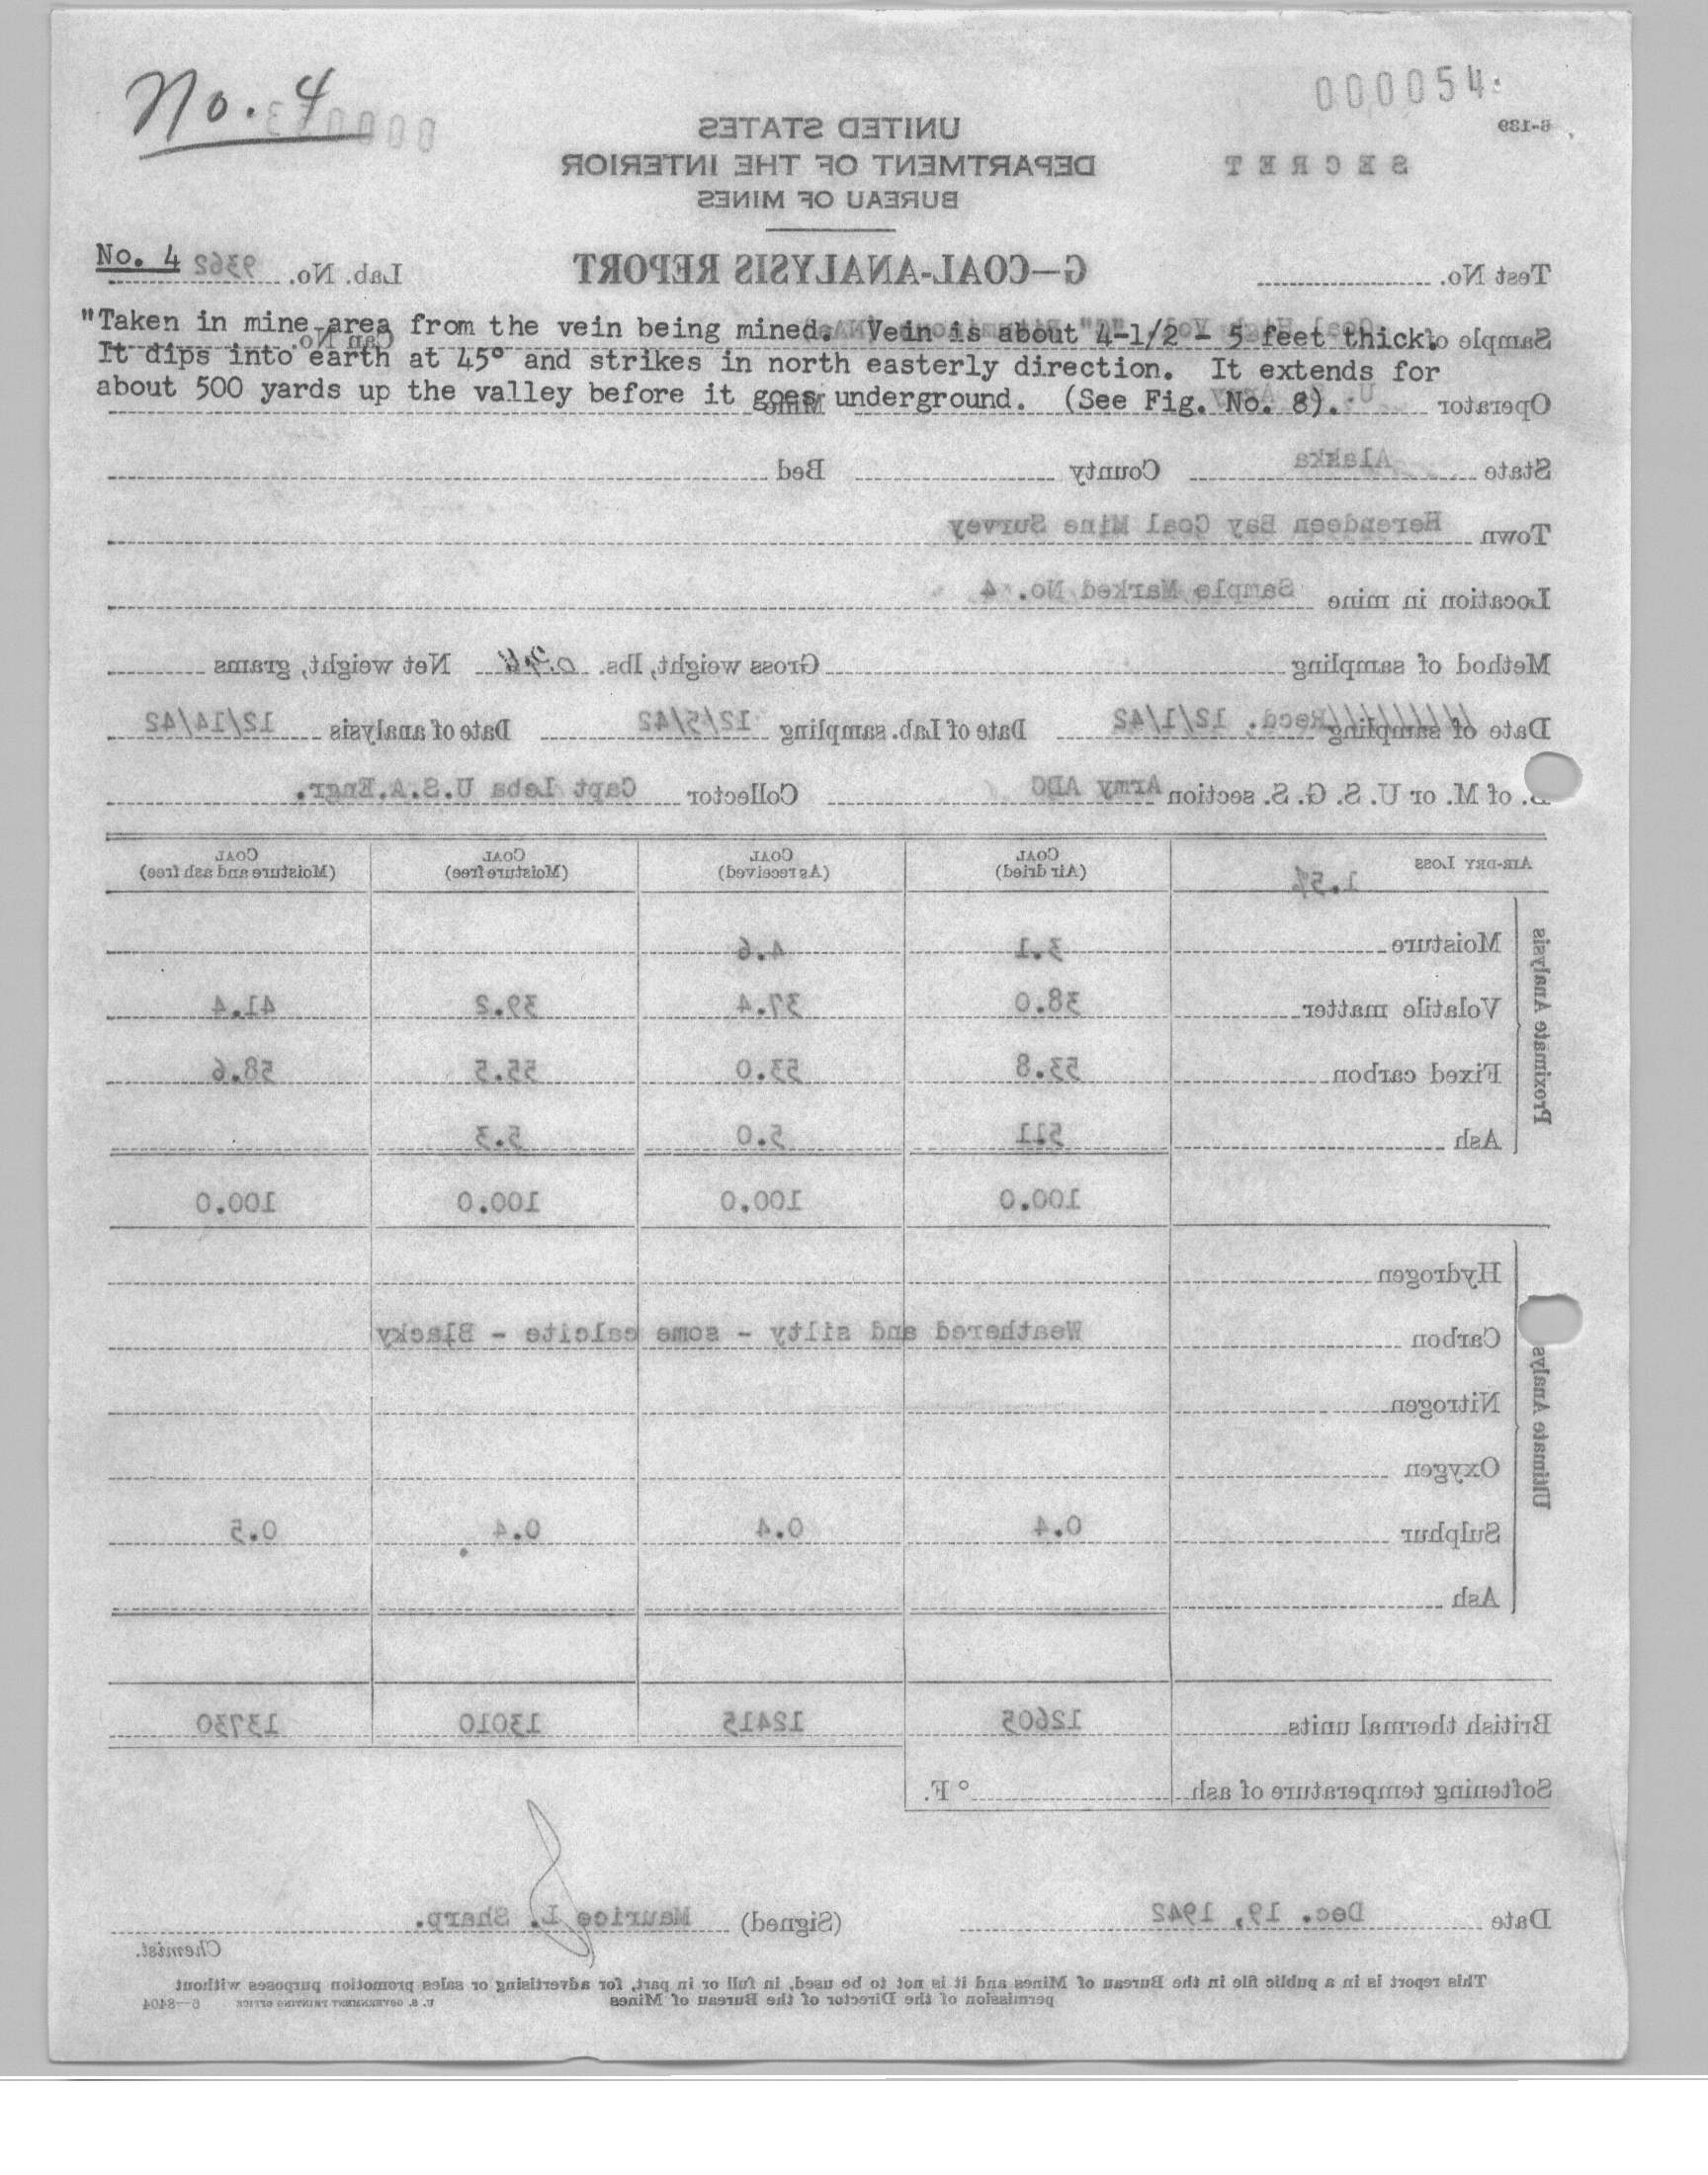 No. 4
000054
000053
6-189
UNITED STATES
DEPARTMENT OF THE INTERIOR
BUREAU OF MINES
SECRET
No. 4
Test No.
G—COAL-ANALYSIS REPORT
Lab. No. 9362
"Taken in mine area from the vein being mined. Vein is about 4-1/2 - 5 feet thick.
It dips into earth at 45° and strikes in north easterly direction. It extends for
about 500 yards up the valley before it goes underground. (See Fig. No. 8).
Sample of Coal High Vol. Can No.
Operator U. S. Army Mine
State Alakka County Bed
Town Herendeen Bay Coal Mine Survey
Location in mine Sample Marked No. 4
Method of sampling Gross weight, lbs. Net weight, grams
Date of sampling Recd. 12/1/42 Date of Lab. sampling 12/5/42 Date of analysis 12/14/42
B. of M. or U. S. G. S. section Army ADC Collector Capt Lebs U.S.A.Engr.
AIR-DRY LOSS 1.5% COAL (Air dried) COAL (As received) COAL (Moisture free) COAL (Moisture and ash free)
Proximate Analysis
Moisture 3.1 4.6
Volatile matter 38.0 37.4 39.2 41.4
Fixed carbon 53.8 53.0 55.5 58.6
Ash 511 5.0 5.3
100.0 100.0 100.0 100.0
Ultimate Analysis
Hydrogen
Carbon
Weathered and silty - some calcite - Blacky
Nitrogen
Oxygen
Sulphur 0.4 0.4 0.4 0.5
Ash
British thermal units 12605 12415 13010 13730
Softening temperature of ash ° F.
Date Dec. 19, 1942 (Signed) Maurice L. Sharp.
Chemist.
This report is in a public file in the Bureau of Mines and it is not to be used, in full or in part, for advertising or sales promotion purposes without
permission of the Director of the Bureau of Mines
U. S. GOVERNMENT PRINTING OFFICE 6—8404